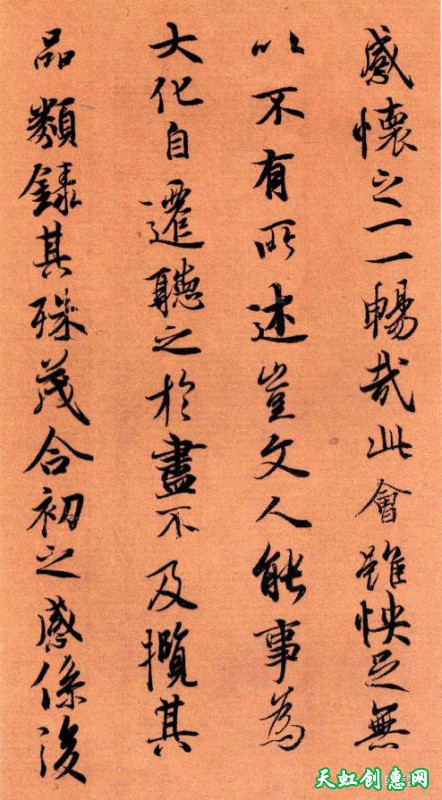 感懷之一一暢哉此會雖怏足無
以不有所述豈文人能事為
大化自遷聽之於盡不及攬其
品類錄其殊茂合初之感係後
天虹创惠网